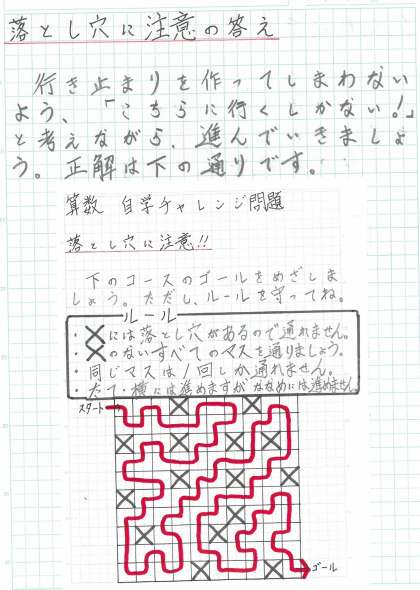 落とし穴に注意の答え
行き止まりを作ってしまわない
よう、「こちらに行くしかない!」
と考えながら、進んでいきましょ
う。正解は下の通りです。
算数 自学チャレンジ問題
落とし穴に注意!!
下のコースのゴールをめざしま
しょう。ただし、ルールを守ってね。
ルール
・×には落とし穴があるので通れません。
・×のないすべてのマスを通りましょう。
・同じマスは1回しか通れません。
・たて・横には進めますがななめには進めません。
スタート
ゴール